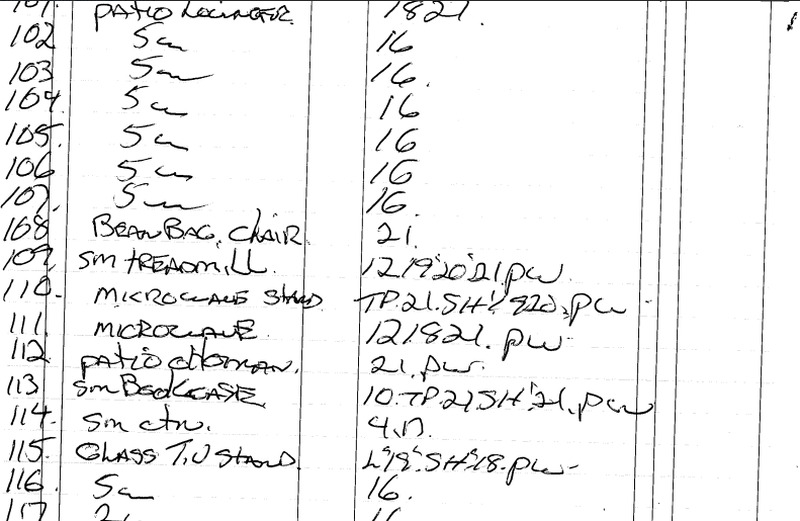 101. PATIO LOUNGER. 1821.
102 5m 16
103 5m 16.
104. 5m 16
105. 5m 16
106 5m 16
107. 5m 16.
108 BEAN BAG, CHAIR. 21.
109. SM TREADMILL. 12 19 20 21. PW.
110. MICROWAVE STAND TP. 21. SH PW
111. MICROWAVE. 12 18 21. PW
112 PATIO OTTOMAN. 21. PW.
113 SM BOOKCASE 10. TP. 21. SH 21. PW
114. SM CTN.
115. GLASS T.V STAND. SH 18. PW
116. 5m 16.
117 16